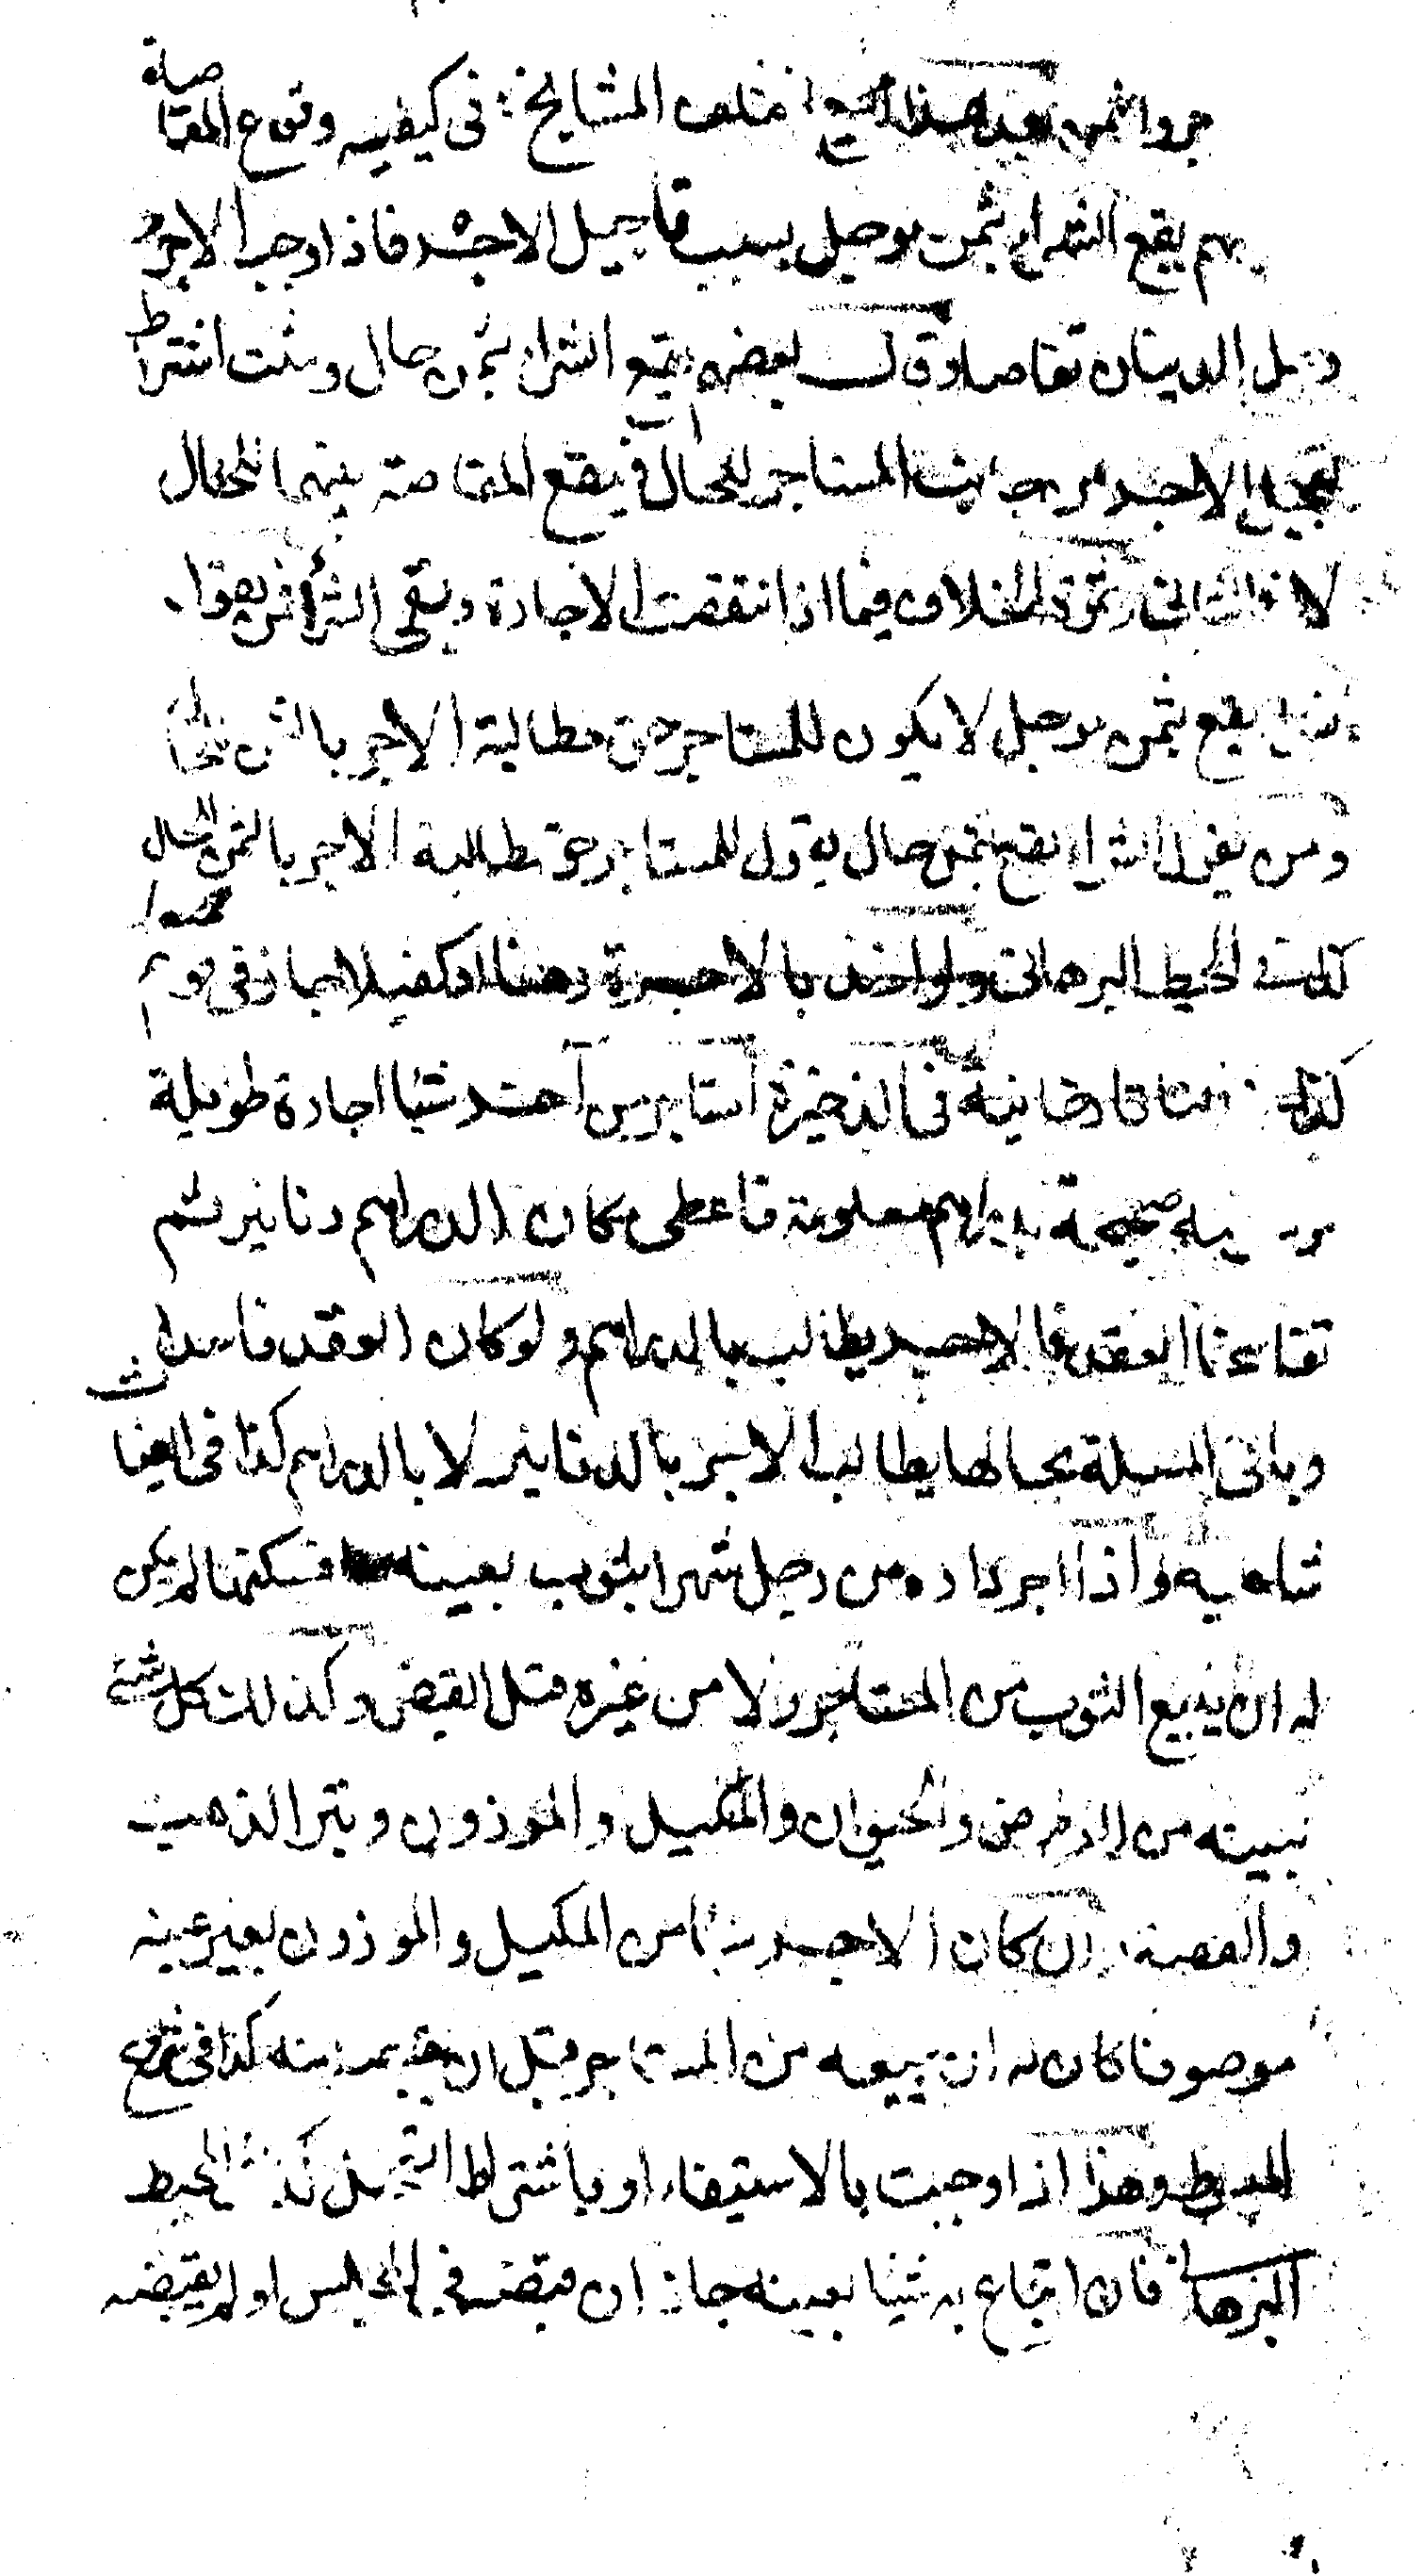 اختلف المشايخ في كيفيه وقوع المقاصة
يقع الشراء بثمن موجل بسبب تاجيل الاجر فاذا وجب الاجر
وحل الدينان تقاصا وقال بعضهم يقع الشراء بثمن حال ويثبت اشتراط
تعجيل الاجر من جانب المستاجر للحال فيقع المقاصة بينهما للحال
لا في الثاني وثمرة الخلاف فيما اذا انتقضت الاجارة وبقى الشراء فمن يقول
يقع بثمن موجل لا يكون للمستاجر حق مطالبة الاجر بالثمن للحال
ومن يقول الشراء يقع بثمن حال يقول للمستاجر حق مطالبة الاجر بالثمن للحال
المحيط البرهاني ولو اخذ بالاجرة رهنا او كفيلا جاز في قولهم
كذا تاتارخانية في الذخيرة استاجر من آخر شيئا اجارة طويلة
صحيحة بدراهم معلومة فاعطى مكان الدراهم دنانير ثم
تفاسخا العقد فالاجير يطالب بالدراهم ولو كان العقد فاسدا
وباقى المسئلة بحالها يطالب الاجر بالدنانير لا بالدراهم كذا في الغياثـ
واذا اجر داره من رجل شهرا بثوب بعينه فسكنها لم يكن
له ان يبيع الثوب من المستاجر ولا من غيره قبل القبض وكذلك كل شئ
بعينه من العروض والحيوان والمكيل والموزون وتبر الذهب
والفضة وان كان الاجر شيئا من المكيل والموزون بغير عينه
موصوفا كان له ان يبيعه من المستاجر قبل ان يقبضه منه كذا في شرح
المبسوط وهذا اذا وجبت بالاستيفاء او باشتراط التعجيل كذا المحيط
البرهاني فان ابتاع به شيئا بعينه جاز ان قبضه في المجلس او لم يقبضه